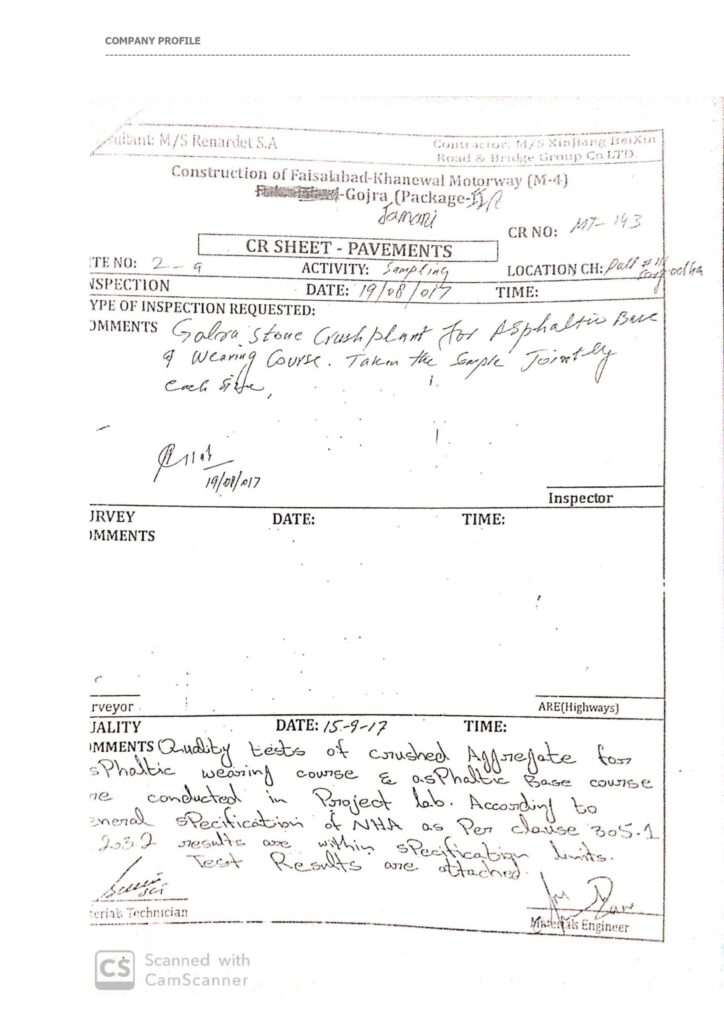 COMPANY PROFILE
sultant: M/S Renardet S.A
Contractor: M/S XinJiang BeiXin
Road & Bridge Group Co.LTD.
Construction of Faisalabad-Khanewal Motorway (M-4)
-Gojra (Package-
CR NO: MT-143
CR SHEET - PAVEMENTS
TE NO: 2-a
ACTIVITY: Sampling
LOCATION CH:
NSPECTION
DATE: 19/08/017
TIME:
YPE OF INSPECTION REQUESTED:
OMMENTS Stone Crush plant for Asphaltic Base
& Wearing Course. Taken the Sample Jointly
each
19/08/017
Inspector
URVEY
DATE:
TIME:
OMMENTS
rveyor
ARE(Highways)
UALITY
DATE: 15-9-17
TIME:
OMMENTS Quality tests of crushed Aggregate for
sphaltic wearing course & asphaltic Base course
re conducted in Project lab. According to
eneral specification of NHA as Per clause 305.1
203.2 results are within specification limits.
Test Results are attached.
terials Technician
Materials Engineer
CS Scanned with
CamScanner